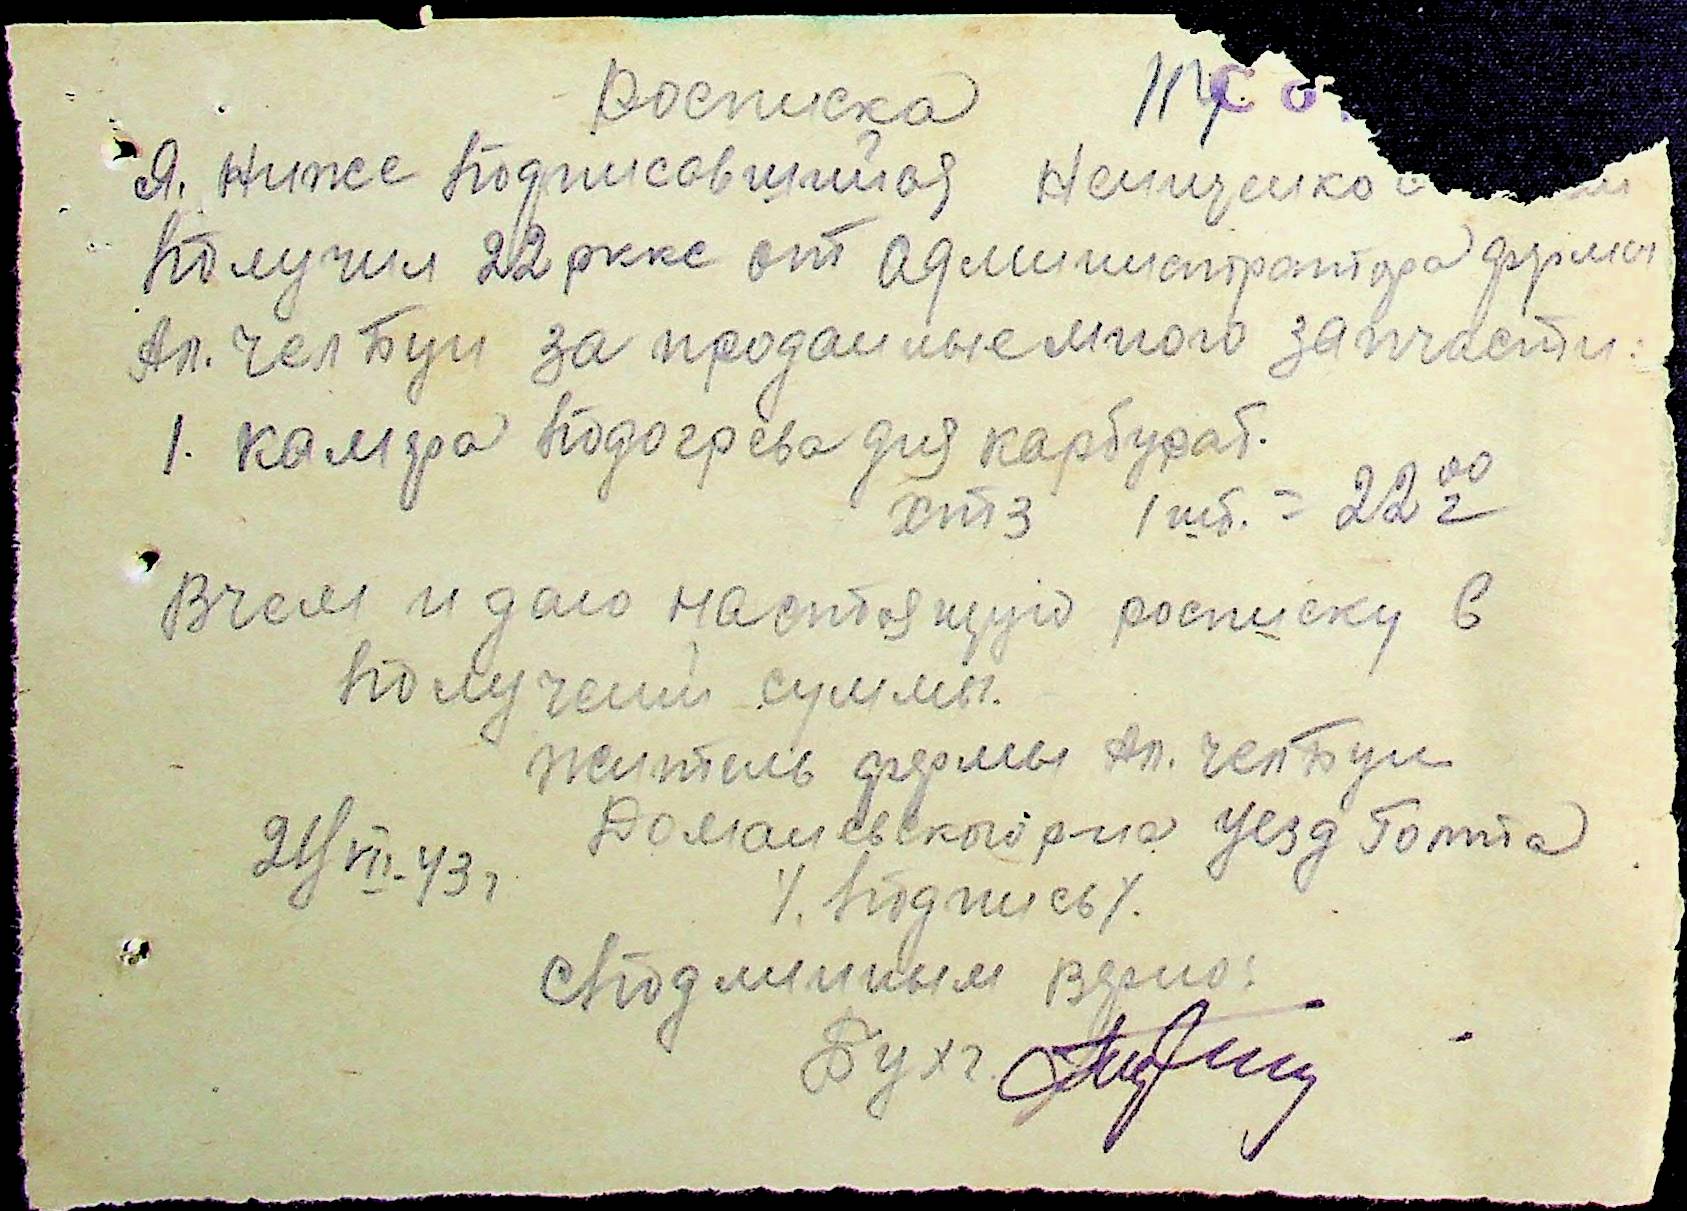 Росписка
Я. Ниже подписавшийся Нечищенко
получил 22 ркке от администратора фермы
Ал. челбуи за проданые мною запчасти:
1. камера подогрева для карбурат.
ХТЗ 1 шт. = 22 00
В чем и даю настоящую росписку в
получении суммы.
житель фермы Ал. челбуи
Доманевского р-на уезд Голта
24/VII-43 г
/. подпись /.
С подлинным верно:
Бухг.